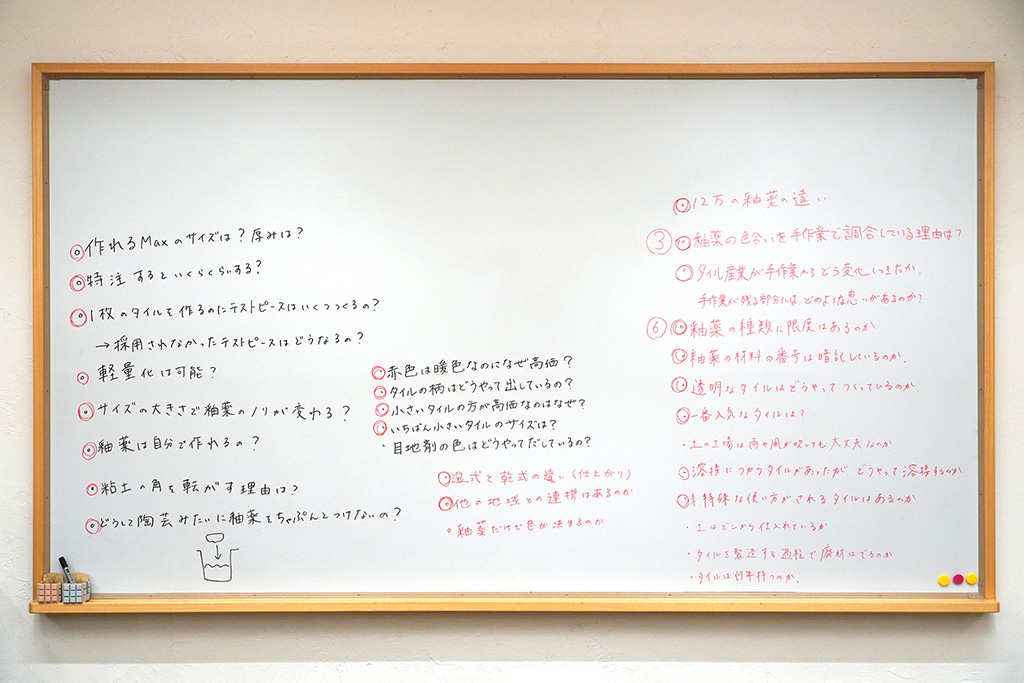 ◎作れるMaxのサイズは?厚みは?
◎特注するといくらくらいする?
◎1枚のタイルを作るのにテストピースはいくつつくるの?
→採用されなかったテストピースはどうなるの?
◎軽量化は可能?
◎サイズの大きさで釉薬のノリが変わる?
◎釉薬は自分で作れるの?
◎粘土の角を転がす理由は?
◎どうして陶芸みたいに釉薬をちゃぷんとつけないの?
◎赤色は暖色なのになぜ高価?
◎タイルの柄はどうやって出しているの?
◎小さいタイルの方が高価なのはなぜ?
◎いちばん小さいタイルのサイズは?
・目地剤の色はどうやってだしているの?
◎湿式と乾式の違い(仕上がり)
◎他の地域との連携はあるのか
・釉薬だけで色が決まるのか
◎12万の釉薬の違い
③◎釉薬の色合いを手作業で調合している理由は?
◎タイル産業が手作業からどう変化してきたか。
手作業が残る部分には、どのような思いがあるのか?
⑥◎釉薬の種類に限度はあるのか
◎釉薬の材料の番号は暗記しているのか。
◎透明なタイルはどうやってつくっているのか。
◎一番人気なタイルは?
・土の工場は雨や風が吹いても大丈夫なのか
◎溶接につかうタイルがあったがどうやって溶接するのか
◎特殊な使い方がされるタイルはあるのか
・土はどこから仕入れているか
・タイルを製造する過程で廃材はでるのか
・タイルは何年持つのか。